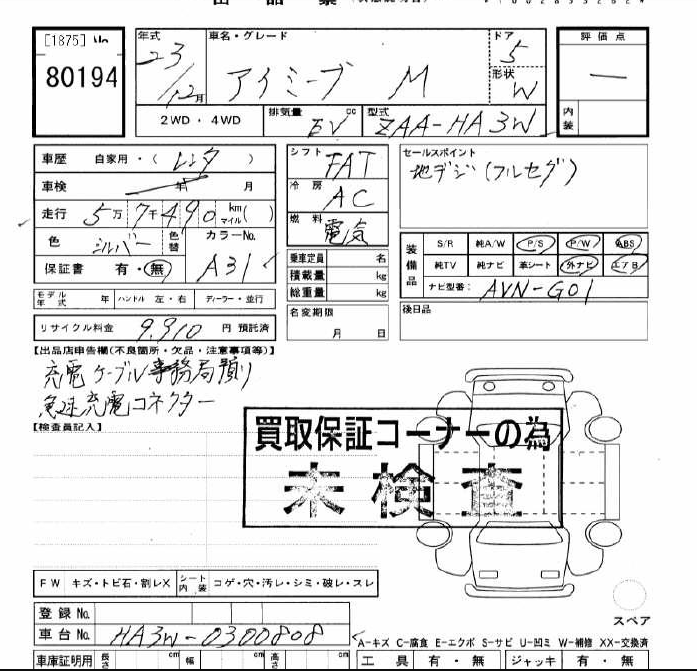 [1875] No
80194
年式 車名・グレード ドア 評価点
23 アイミーブ M 5
12月 形状 W
2WD・4WD 排気量 cc 型式 内装
EV ZAA-HA3W
車歴 自家用・( レンタ ) シフト FAT セールスポイント
地デジ(フルセグ)
車検 年 月 冷房 AC
走行 5万7千490 km マイル ( ) 燃料 電気
色 シルバー 色替 カラーNo. A31
保証書 有・無
乗車定員 名
積載量 kg
総重量 kg
装備品 S/R 純A/W P/S P/W ABS
純TV 純ナビ 革シート 外ナビ エアB
ナビ型番: AVN-G01
モデル年式 年 ハンドル 左・右 ディーラー・並行
名変期限 月 日
後日品
リサイクル料金 9,910 円 預託済
【出品店申告欄(不良箇所・欠品・注意事項等)】
充電ケーブル事務局預り
急速充電コネクター
【検査員記入】
買取保証コーナーの為
未検査
FW キズ・トビ石・割レX シート内装 コゲ・穴・汚レ・シミ・破レ・スレ
スペア
登録No.
車台No. HA3W-0300808
A-キズ C-腐食 E-エクボ S-サビ U-凹ミ W-補修 XX-交換済
車庫証明用 長さ cm 幅 cm 高さ cm 工具 有・無 ジャッキ 有・無